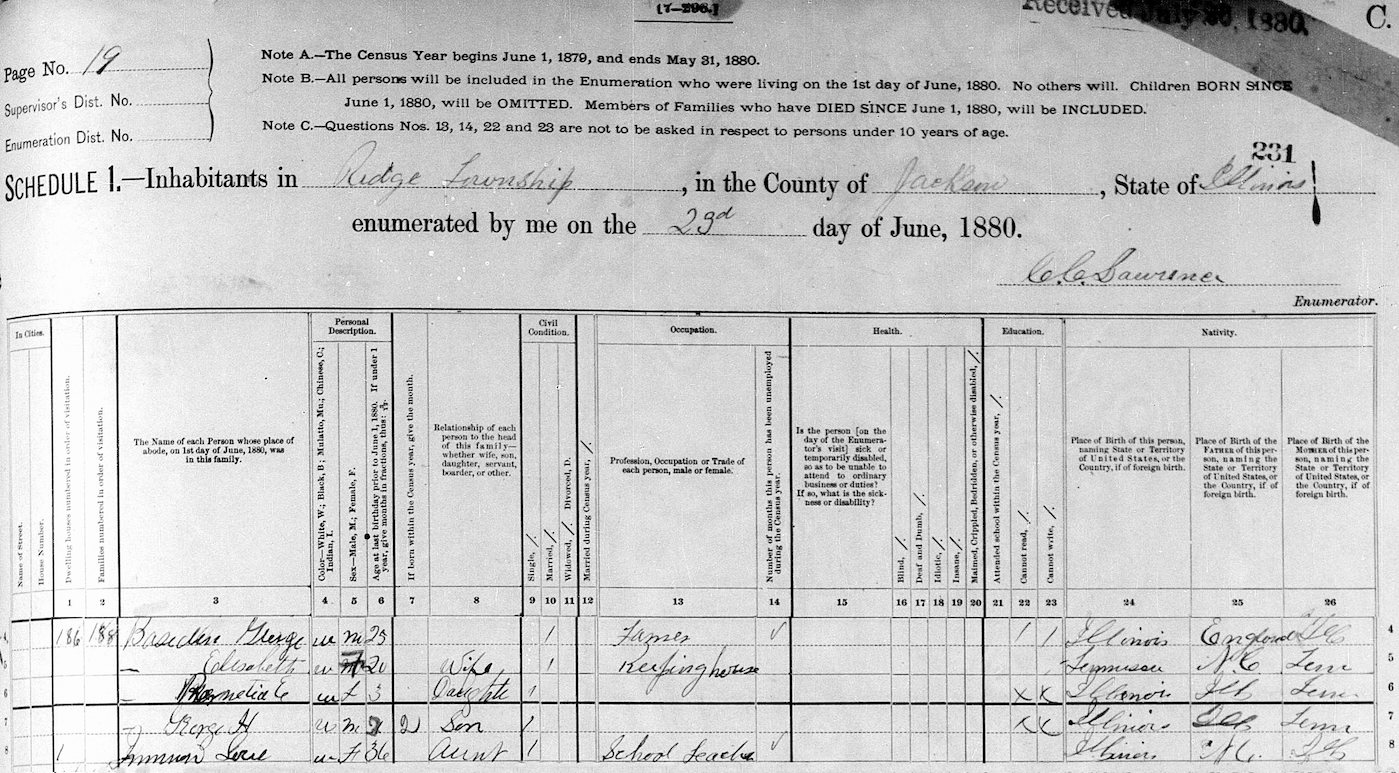 [7-296.]
Received July 30, 1880.
C.
Page No. 19
Supervisor's Dist. No.
Enumeration Dist. No.
Note A.—The Census Year begins June 1, 1879, and ends May 31, 1880.
Note B.—All persons will be included in the Enumeration who were living on the 1st day of June, 1880. No others will. Children BORN SINCE
June 1, 1880, will be OMITTED. Members of Families who have DIED SINCE June 1, 1880, will be INCLUDED.
Note C.—Questions Nos. 13, 14, 22 and 23 are not to be asked in respect to persons under 10 years of age.
231
SCHEDULE 1.—Inhabitants in Ridge Township, in the County of Jackson, State of Illinois
enumerated by me on the 23d day of June, 1880.
C.C. Lawrence
Enumerator.
In Cities.
Name of Street.
House Number.
Dwelling houses numbered in order of visitation.
Families numbered in order of visitation.
The Name of each Person whose place of
abode, on 1st day of June, 1880, was
in this family.
Personal
Description.
Color—White, W.; Black, B.; Mulatto, Mu.; Chinese, C.;
Indian, I.
Sex—Male, M.; Female, F.
Age at last birthday prior to June 1, 1880. If under 1
year, give months in fractions, thus: 3/12
If born within the Census year, give the month.
Relationship of each
person to the head
of this family—
whether wife, son,
daughter, servant,
boarder, or other.
Civil
Condition.
Single, /.
Married, /.
Widowed, /. Divorced, D.
Married during Census year, /.
Occupation.
Profession, Occupation or Trade of
each person, male or female.
Number of months this person has been unemployed
during the Census year.
Health.
Is the person [on the
day of the Enumera-
tor's visit] sick or
temporarily disabled,
so as to be unable to
attend to ordinary
business or duties?
If so, what is the sick-
ness or disability?
Blind, /.
Deaf and Dumb, /.
Idiotic, /.
Insane, /.
Maimed, Crippled, Bedridden, or otherwise disabled, /.
Education.
Attended school within the Census year, /.
Cannot read, /.
Cannot write, /.
Nativity.
Place of Birth of this person,
naming State or Territory
of United States, or the
Country, if of foreign birth.
Place of Birth of the
FATHER of this per-
son, naming the
State or Territory
of United States, or
the Country, if of
foreign birth.
Place of Birth of the
MOTHER of this per-
son, naming the
State or Territory
of United States, or
the Country, if of
foreign birth.
1 2 3 4 5 6 7 8 9 10 11 12 13 14 15 16 17 18 19 20 21 22 23 24 25 26
4 186 188 George w m 25 / Farmer ✓ / / Illinois England Ills 4
5 — Elisabeth w 20 Wife / Keeping house / Tennessee N.C. Tenn 5
6 — w f 3 Daughte / x x Illinois Ills Tenn 6
7 — George H w m 2 Son / x x Illinois Ills Tenn 7
8 1 w f 36 Aunt / School Teache ✓ Illinois N.C. Ills 8